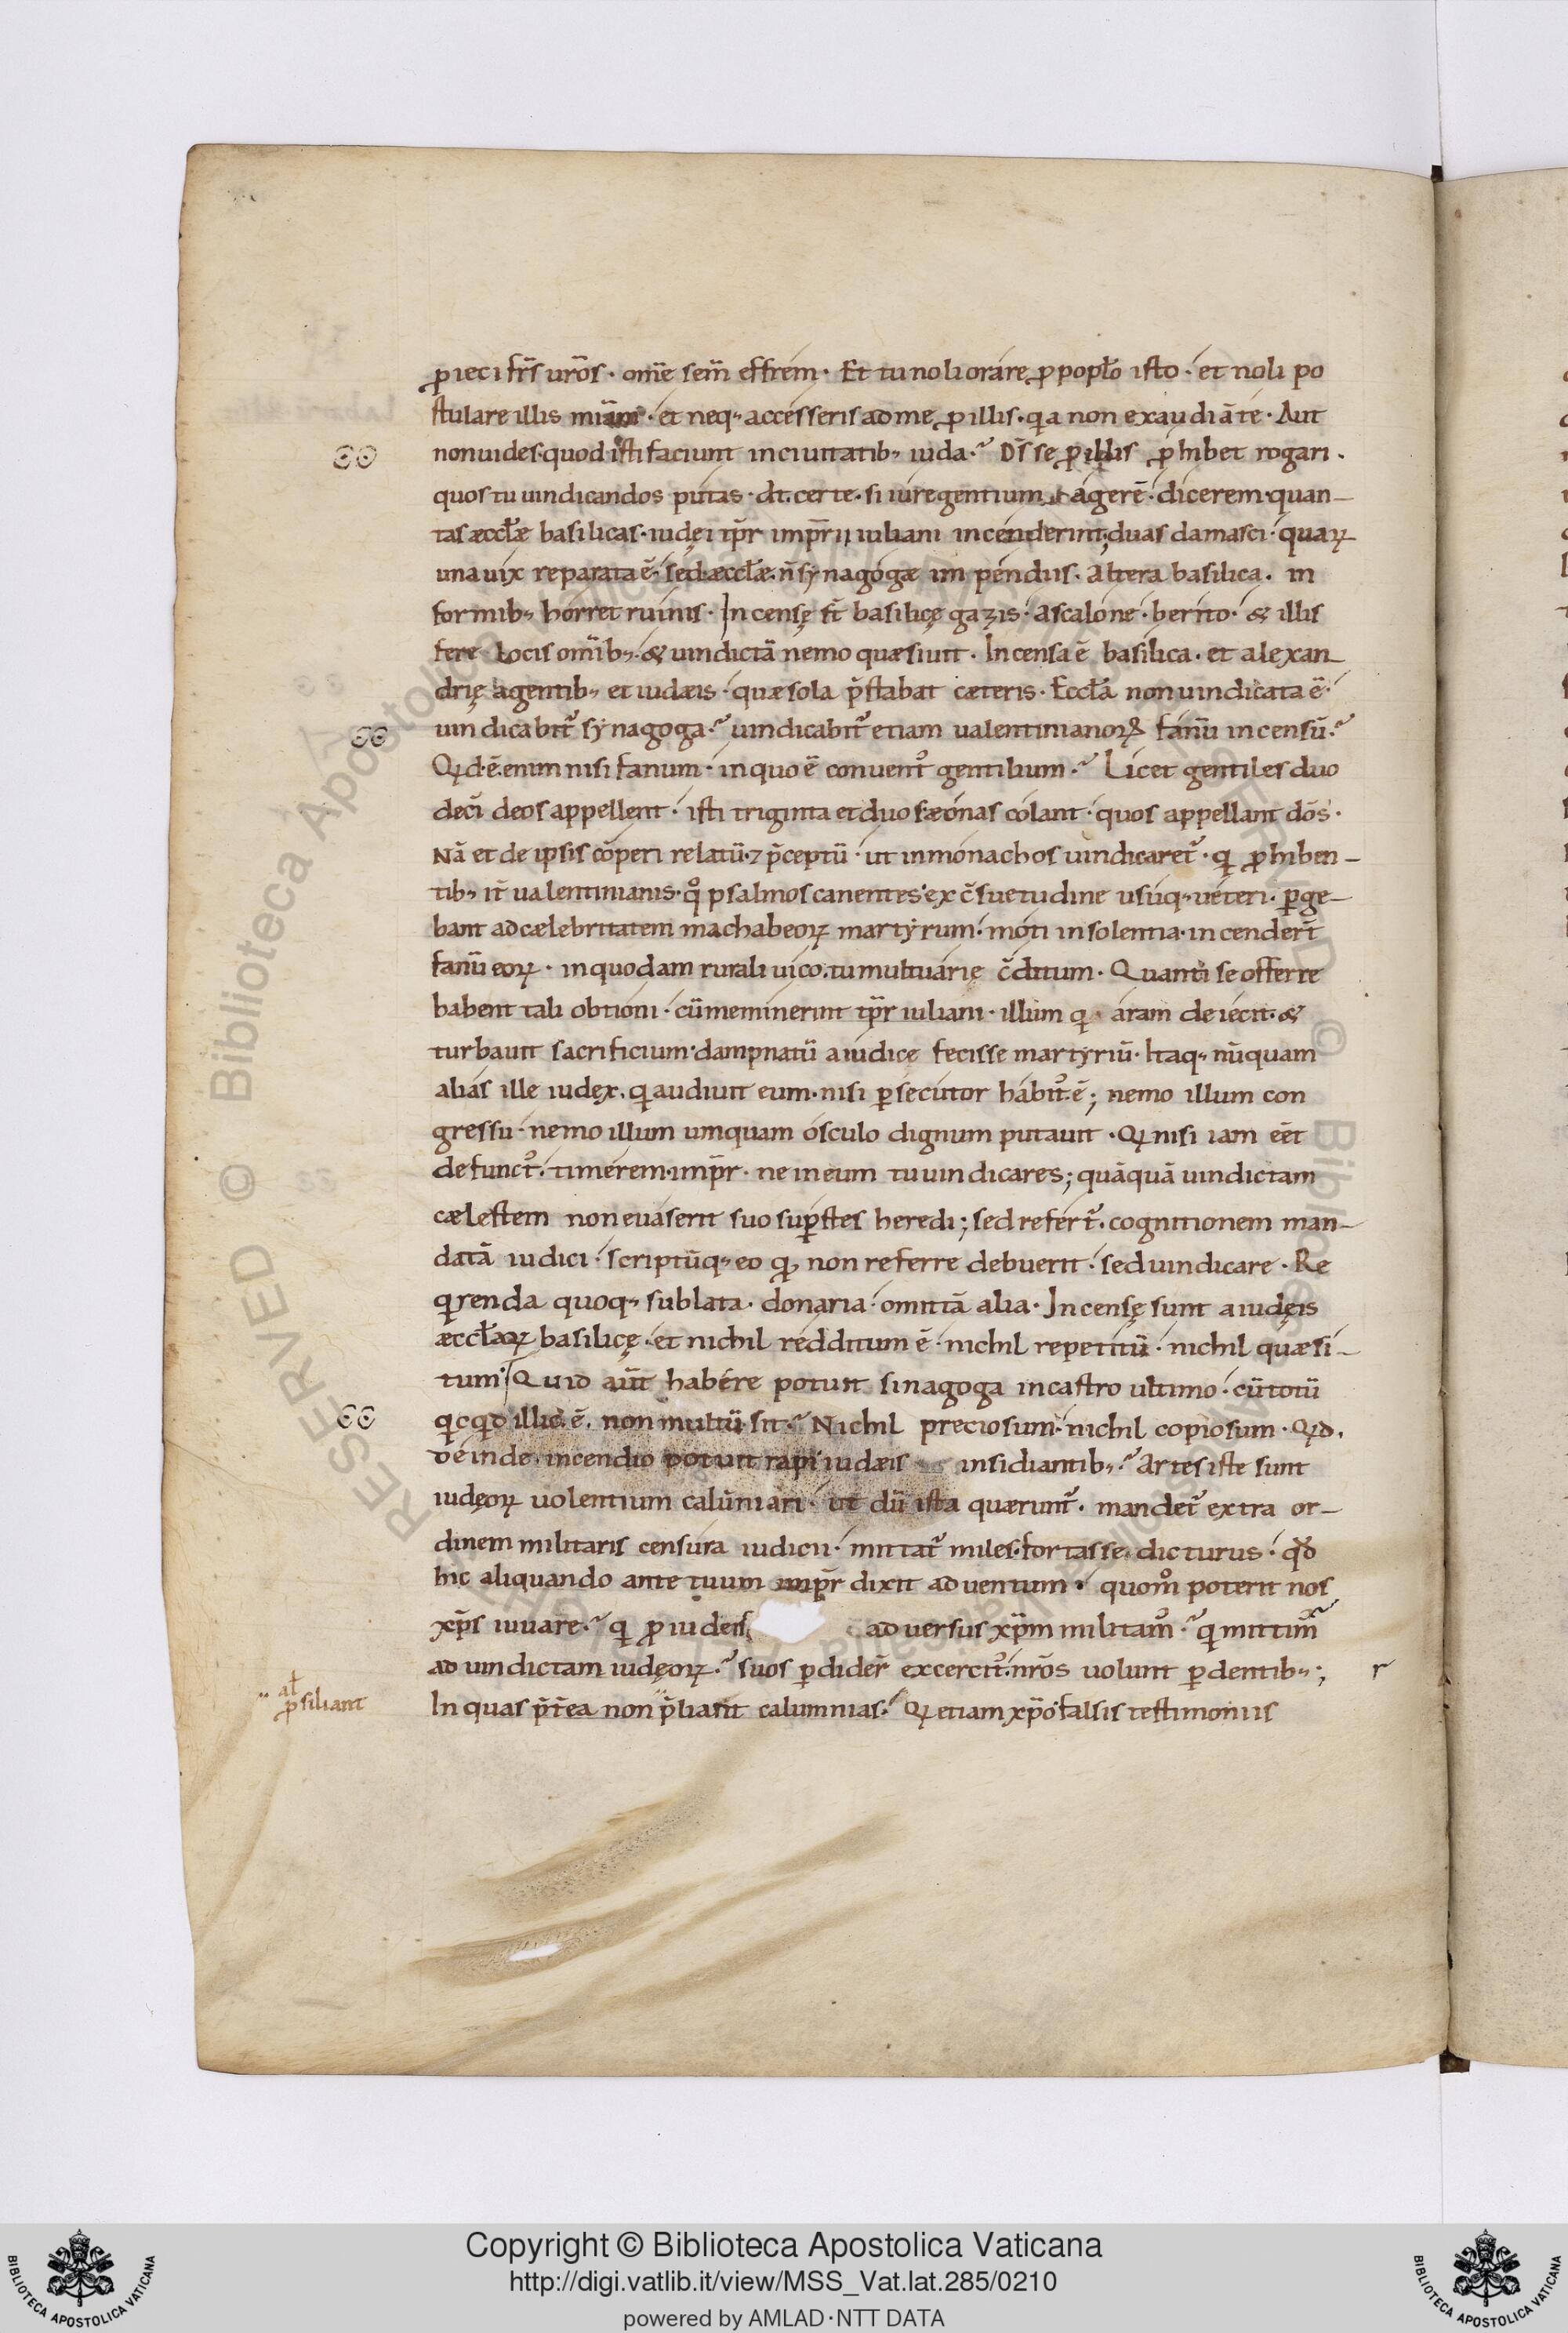 ꝓieci fr̃s ur̃os · om̃e sem̃ effrem · Et tu noli orare ꝓ popl̃o isto · et noli po
stulare illis mĩam · et neq; accesseris ad me ꝓ illis · qia non exaudiã te · Aut
non uides quod isti faciunt in ciuitatib; iuda · D̃s se ꝓ illis ꝓhibet rogari ·
quos tu uindicandos putas · At certe · si iure gentium agerẽ · dicerem quan-
tas æccl̃ę basilicas · iudęi tp̃r imp̃rii iuliani incenderint; duas damasci · quaꝝ
una uix reparata ẽ · sed æccl̃æ · ñ synagogæ impendiis · Altera basilica · in
formib; horret ruinis · Incensę st̃ basilicę gazis · ascalone · berito · & illis
fere locis om̃ib; · & uindictã nemo quæsiuit · Incensa ẽ basilica · et alexan-
drię agentib; et iudæis · quæ sola p̃stabat cæteris · Eccl̃a non uindicata ẽ ·
uindicabit̃ synagoga · uindicabit̃ etiam ualentinianoꝝ fanũ incensũ ·
Qid ẽ enim nisi fanum · in quo ẽ conuent᾿ gentilium · Licet gentiles duo
decĩ deos appellent · isti triginta et duos æonas colant · quos appellant dõs ·
Nã et de ipsis cõperi relatũ ⁊ p̃ceptũ · ut in monachos uindicaret̃ · qi ꝓhiben-
tib; it̃ ualentinianis · qͦ psalmos canentes ex c̃suetudine usuq; ueteri · ꝑge-
bant ad cælebritatem machabeoꝝ martyrum · moti insolentia · incender̃t
fanũ eoꝝ · in quodam rurali uico · tumultuarię c̃ditum · Quanti se offerre
habent tali obtioni · cũ meminerint tp̃r iuliani · illum qi aram deiecit · &
turbauit sacrificium · dampnatũ a iudice fecisse martyriũ · Itaq; nũquam
alias ille iudęx · qi audiuit eum · nisi ꝑsecutor habit᾿ ẽ; nemo illum con
gressu · nemo illum umquam osculo dignum putauit · Qi nisi iam eẽt
defunct᾿ · timerem · imp̃r · ne in eum tu uindicares; quãquã uindictam
cælestem non euaserit suo suꝑstes heredi; sed refert̃ · cognitionem man-
datã iudici · scriptũq; eo qͦ non referre debuerit · sed uindicare · Re
qirenda quoq; sublata · donaria · omittã alia · Incensę sunt a iudęis
æccl̃aꝝ basilicę · et nichil redditum ẽ · nichil repetitũ · nichil quæsi-
tum · Quid aũt habere potuit sinagoga in castro ultimo · cũ totũ
qicqid illic ẽ · non multũ sit · Nichil preciosum · nichil copiosum · Qid ·
deinde · incendio potuit rapi iudæis insidiantib; · Artes iste sunt
iudęoꝝ uolentium calũniari · ut dũ ista quærunt̃ · mandet̃ extra or-
dinem militaris censura iudicii · mittat̃ miles · fortasse dicturus · qͦd
hic aliquando ante tuum imp̃r dixit aduentum · quom̊ poterit nos
xp̃s iuuare · qi ꝓ iudeis aduersus xp̃m militam᾿ · qi mittim᾿
ad uindictam iudęoꝝ · suos ꝑdider̃ excercit᾿ · nr̃os uolunt ꝑdentib; ; r
al̃ ꝓsiliant
In quas p̃t̃ea non p̃liant calumnias · Qi etiam xp̃o falsis testimoniis
Copyright © Biblioteca Apostolica Vaticana
http://digi.vatlib.it/view/MSS_Vat.lat.285/0210
powered by AMLAD·NTT DATA